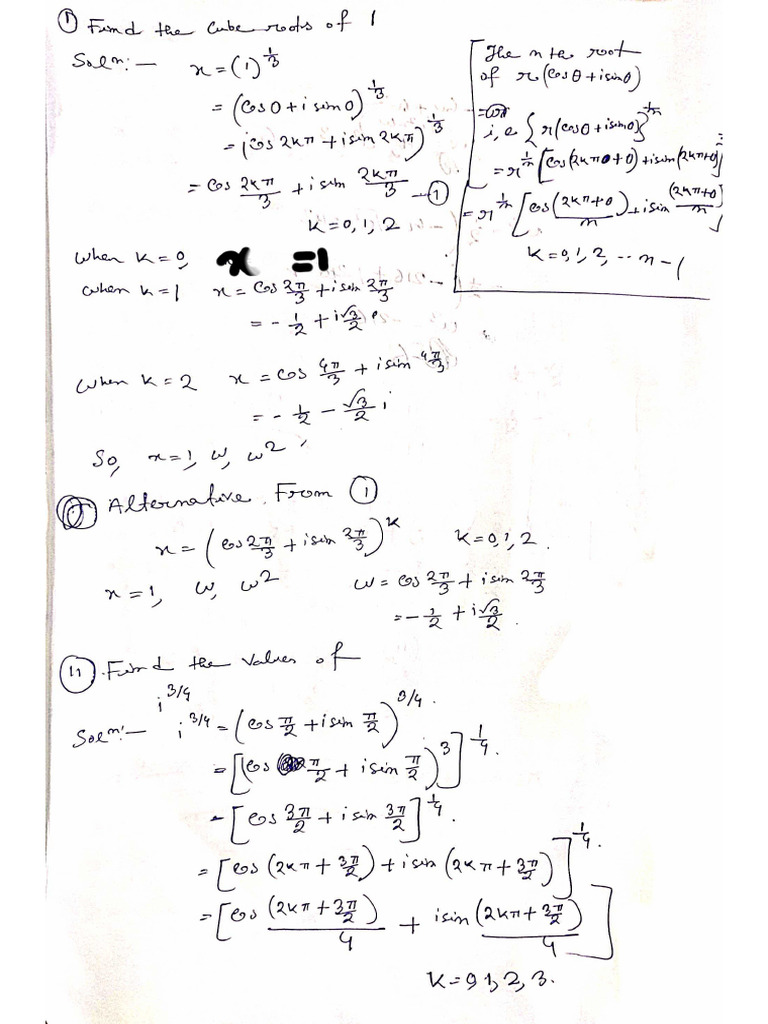 ① Find the cube roots of 1
Soln:— x = (1)^{1/3}
= (cos 0 + i sin 0)^{1/3}
= (cos 2kπ + i sin 2kπ)^{1/3}
= cos 2kπ/3 + i sin 2kπ/3 — ①
k = 0, 1, 2
The nth root
of r(cos θ + i sin θ)
i, e {r(cos θ + i sin θ)}^{1/n}
= r^{1/n} [cos(2kπ + θ) + i sin(2kπ + θ)]
= r^{1/n} [cos (2kπ + θ)/n + i sin (2kπ + θ)/n]
k = 0, 1, 2, ... n - 1
when k = 0, x = 1
when k = 1 x = cos 2π/3 + i sin 2π/3
= - 1/2 + i√3/2
when k = 2 x = cos 4π/3 + i sin 4π/3
= - 1/2 - √3/2 i
So, x = 1, ω, ω²
Alternative. From ①
x = (cos 2π/3 + i sin 2π/3)^k k = 0, 1, 2.
x = 1, ω, ω² ω = cos 2π/3 + i sin 2π/3
= - 1/2 + i√3/2.
⑪ Find the values of
i^{3/4}
Soln:— i^{3/4} = (cos π/2 + i sin π/2)^{3/4}.
= [(cos π/2 + i sin π/2)^3]^{1/4}.
= [cos 3π/2 + i sin 3π/2]^{1/4}.
= [cos (2kπ + 3π/2) + i sin (2kπ + 3π/2)]^{1/4}.
= [cos (2kπ + 3π/2)/4 + i sin (2kπ + 3π/2)/4]
k = 0, 1, 2, 3.